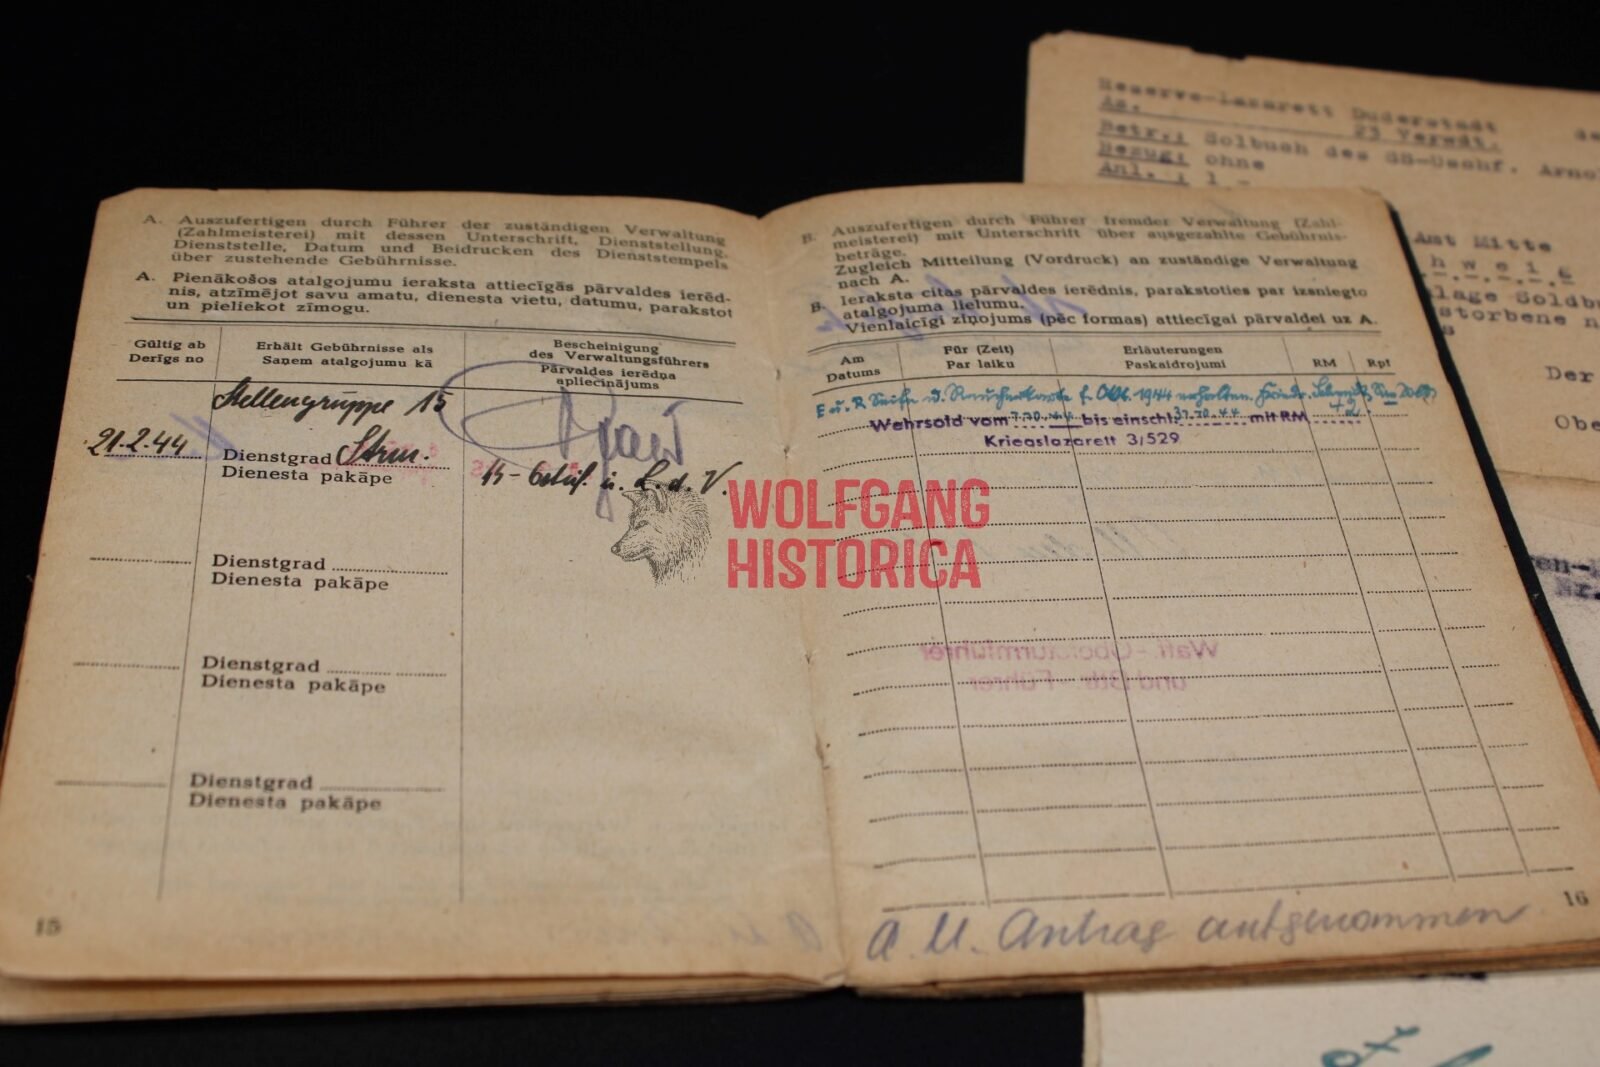 Reserve-Lazarett Duderstadt
Az. 23 Verwdt.
Betr.: Solbuch des SS-Uschf. Arno
Bezug: ohne
Anl. : 1 -
Amt Mitte
h w e i g
lage Soldb
storbene n
s
Der
Obe
en-
Nr.
A. Auszufertigen durch Führer der zuständigen Verwaltung
(Zahlmeisterei) mit dessen Unterschrift, Dienststellung,
Dienststelle, Datum und Beidrucken des Dienststempels
über zustehende Gebührnisse.
A. Pienākošos atalgojumu ieraksta attiecīgās pārvaldes ierēd-
nis, atzīmējot savu amatu, dienesta vietu, datumu, parakstot
un pieliekot zīmogu.
Gültig ab
Derīgs no
Erhält Gebührnisse als
Saņem atalgojumu kā
Bescheinigung
des Verwaltungsführers
Pārvaldes ierēdņa
apliecinājums
Stellengruppe 15
21.2.44
Dienstgrad Strm.
Dienesta pakāpe
u. L. d. V.
Dienstgrad
Dienesta pakāpe
Dienstgrad
Dienesta pakāpe
Dienstgrad
Dienesta pakāpe
15
B. Auszufertigen durch Führer fremder Verwaltung (Zahl-
meisterei) mit Unterschrift über ausgezahlte Gebührnis-
beträge.
Zugleich Mitteilung (Vordruck) an zuständige Verwaltung
nach A.
B. Ieraksta citas pārvaldes ierēdnis, parakstoties par izsniegto
atalgojuma lielumu.
Vienlaicīgi ziņojums (pēc formas) attiecīgai pārvaldei uz A.
Am
Datums
Für (Zeit)
Par laiku
Erläuterungen
Paskaidrojumi
RM
Rpf
u. R Seife u. Raucherkarte f. Okt. 1944 erhalten.
Wehrsold vom bis einschl. mit RM
Kriegslazarett 3/529
Waff.-Obersturmführer
und Bttr.-Führer
A. U. Antrag aufgenommen
16
WOLFGANG
HISTORICA